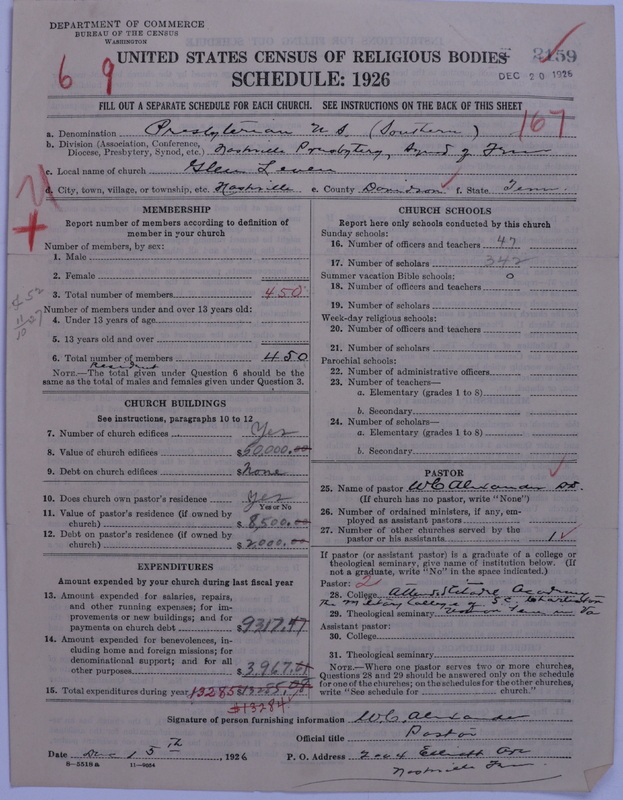 DEPARTMENT OF COMMERCE
BUREAU OF THE CENSUS
WASHINGTON
UNITED STATES CENSUS OF RELIGIOUS BODIES
2159
SCHEDULE: 1926
DEC 20 1926
6 9
FILL OUT A SEPARATE SCHEDULE FOR EACH CHURCH. SEE INSTRUCTIONS ON THE BACK OF THIS SHEET
a. Denomination Presbyterian U S. (Southern) 167
b. Division (Association, Conference, Diocese, Presbytery, Synod, etc.) Nashville Presbytery, Synod of Tenn
c. Local name of church Glen Leven
d. City, town, village, or township, etc. Nashville e. County Davidson f. State Tenn.
MEMBERSHIP
Report number of members according to definition of
member in your church
Number of members, by sex:
1. Male
2. Female
3. Total number of members 450
Number of members under and over 13 years old:
4. Under 13 years of age
5. 13 years old and over
6. Total number of members 450
Resident
NOTE.—The total given under Question 6 should be
same as the total of males and females given under Question 3.
CHURCH BUILDINGS
See instructions, paragraphs 10 to 12
7. Number of church edifices Yes
8. Value of church edifices $50,000.00
9. Debt on church edifices $None
10. Does church own pastor's residence Yes
Yes or No
11. Value of pastor's residence (if owned by
church) $8,500.00
12. Debt on pastor's residence (if owned by
church) $2,000.00
EXPENDITURES
Amount expended by your church during last fiscal year
13. Amount expended for salaries, repairs,
and other running expenses; for im-
provements or new buildings; and for
payments on church debt $9317.47
14. Amount expended for benevolences, in-
cluding home and foreign missions; for
denominational support; and for all
other purposes $3,967.
15. Total expenditures during year 13285
$13284
CHURCH SCHOOLS
Report here only schools conducted by this church
Sunday schools:
16. Number of officers and teachers 47
17. Number of scholars 342
Summer vacation Bible schools: 0
18. Number of officers and teachers
19. Number of scholars
Week-day religious schools:
20. Number of officers and teachers
21. Number of scholars
Parochial schools:
22. Number of administrative officers
23. Number of teachers—
a. Elementary (grades 1 to 8)
b. Secondary
24. Number of scholars—
a. Elementary (grades 1 to 8)
b. Secondary
PASTOR
25. Name of pastor W C Alexander DD.
(If church has no pastor, write "None")
26. Number of ordained ministers, if any, em-
ployed as assistant pastors
27. Number of other churches served by the
pastor or his assistants 1
If pastor (or assistant pastor) is a graduate of a college or
theological seminary, give name of institution below. (If
not a graduate, write "No" in the space indicated.)
Pastor: 2
28. College Academy
The Military College of S.C. Charleston
29. Theological seminary Union Sem in Va
Assistant pastor:
30. College
31. Theological seminary
NOTE.—Where one pastor serves two or more churches,
Questions 28 and 29 should be answered only on the schedule
for one of the churches; on the schedules for the other churches,
write "See schedule for ........ church."
Signature of person furnishing information W.C. Alexander
Official title Pastor
Date Dec 15th, 1926 P. O. Address 2004 Elliott Ave
8—5518a 11—9064 Nashville Tenn.